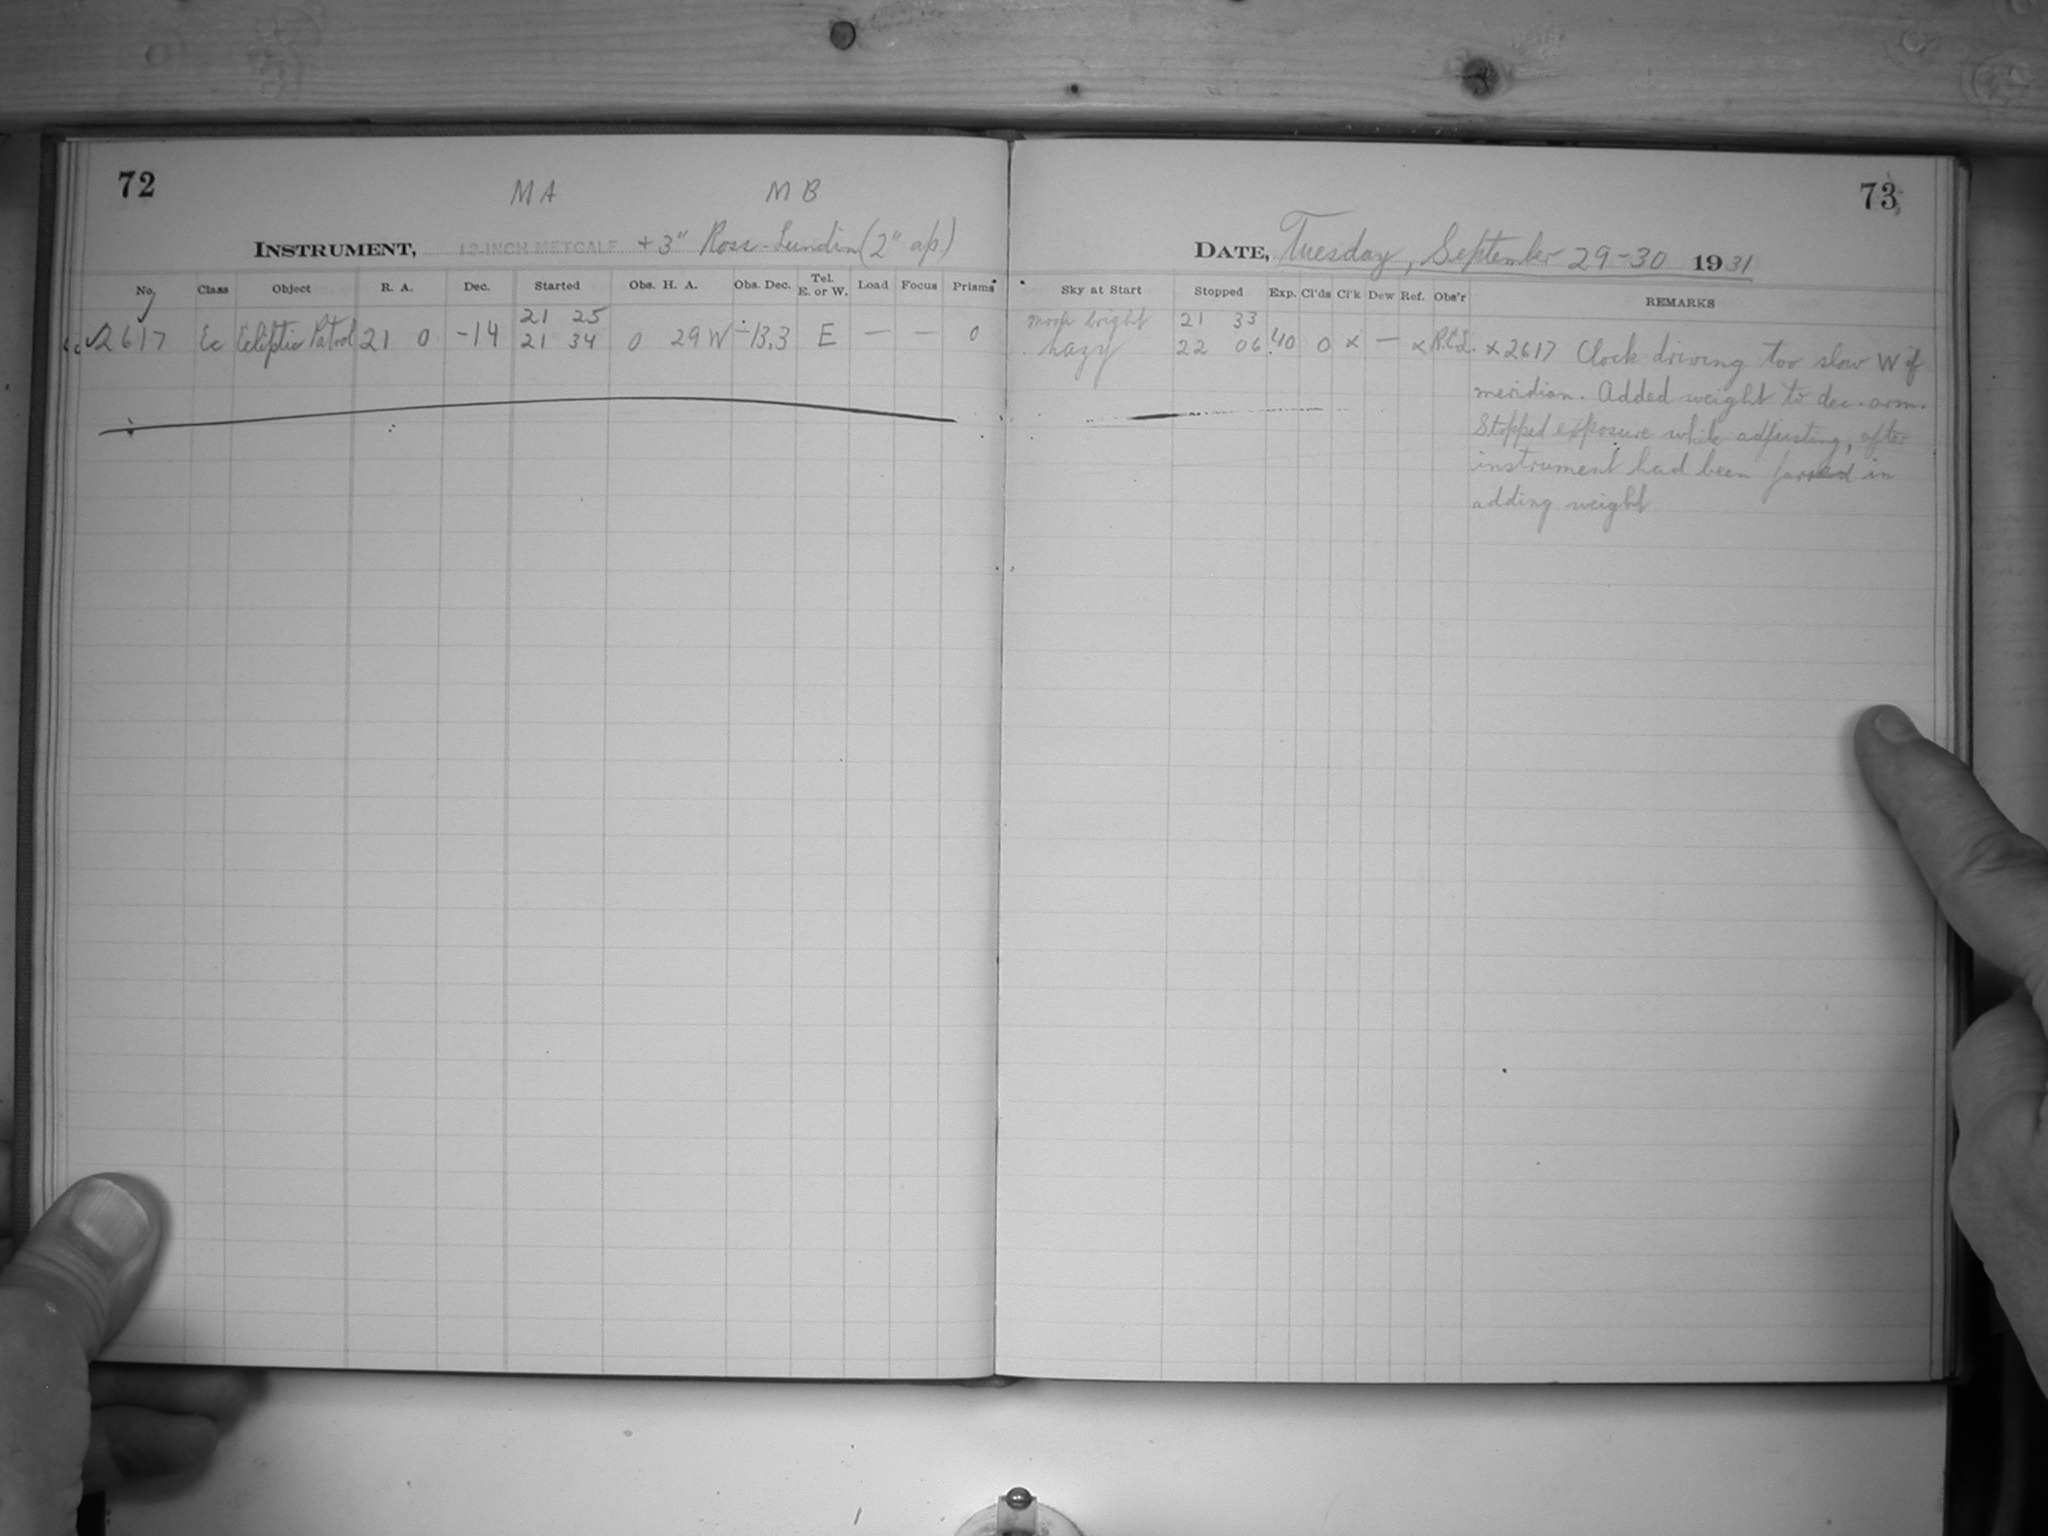 72
MA MB
INSTRUMENT, 12-INCH METCALF + 3" Ross-Lundin (2" ap.)
No. Class Object R. A. Dec. Started Obs. H. A. Obs. Dec. Tel. E. or W. Load Focus Prisms
21 25
2617 Ec Ecliptic Patrol 21 0 -14 21 34 0 29 W -13.3 E — — 0
73
DATE, Tuesday, September 29-30 1931
Sky at Start Stopped Exp. Cl'ds Cl'k Dew Ref. Obs'r REMARKS
moon bright 21 33
hazy 22 06 40 0 x — x x 2617 Clock driving too slow W of
meridian. Added weight to dec. arm.
Stopped exposure while adjusting, after
instrument had been jarred in
adding weight